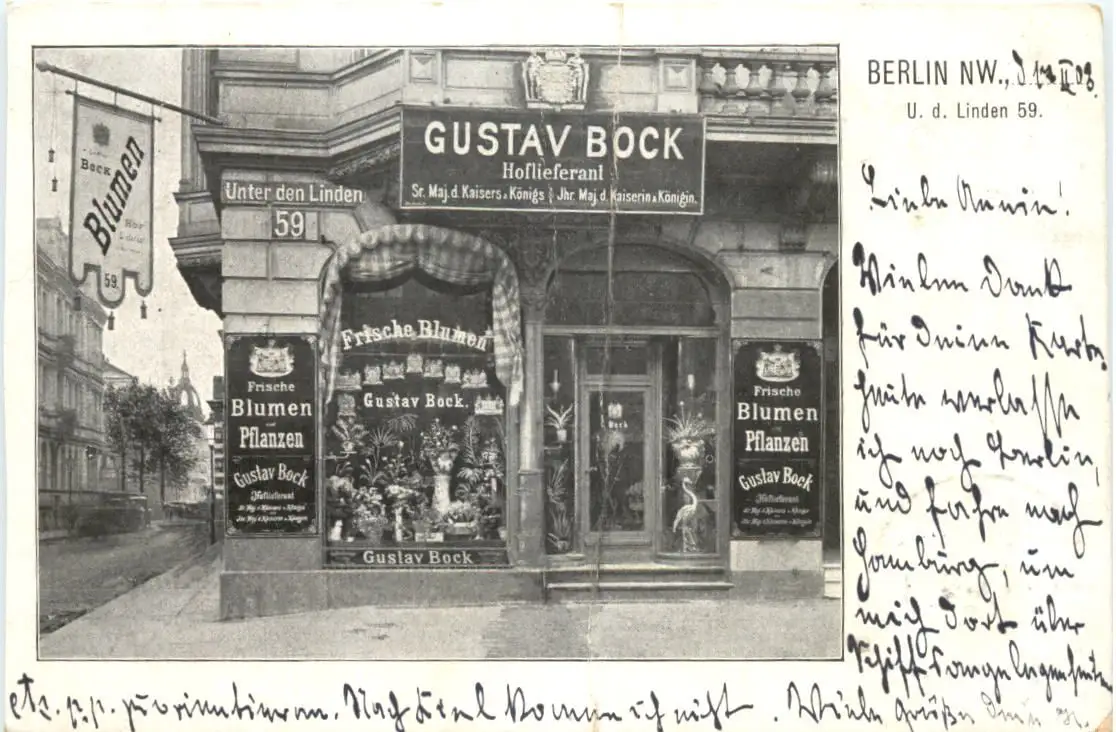 BERLIN NW., d. 17 II 03.
U. d. Linden 59.
Bock
Blumen
59.
Unter den Linden
59
GUSTAV BOCK
Hoflieferant
Sr. Maj. d. Kaisers u. Königs Jhr. Maj. d. Kaiserin u. Königin.
Frische Blumen
Gustav Bock.
Gustav Bock
Frische
Blumen
und
Pflanzen
Gustav Bock
Hoflieferant
Sr. Maj. d. Kaisers u. Königs
Jhr. Maj. d. Kaiserin u. Königin
Bock
Frische
Blumen
und
Pflanzen
Gustav Bock
Hoflieferant
Sr. Maj. d. Kaisers u. Königs
Jhr. Maj. d. Kaiserin u. Königin
Liebe
Vielen Dank
für Deine Karte,
heute verlasse
ich noch Berlin,
und fahre nach
Hamburg, um
mich dort über
Schiffsangelegenheiten
etc. p.p. zu orientieren. Nach Kiel komme ich nicht. Viele Grüße Dein